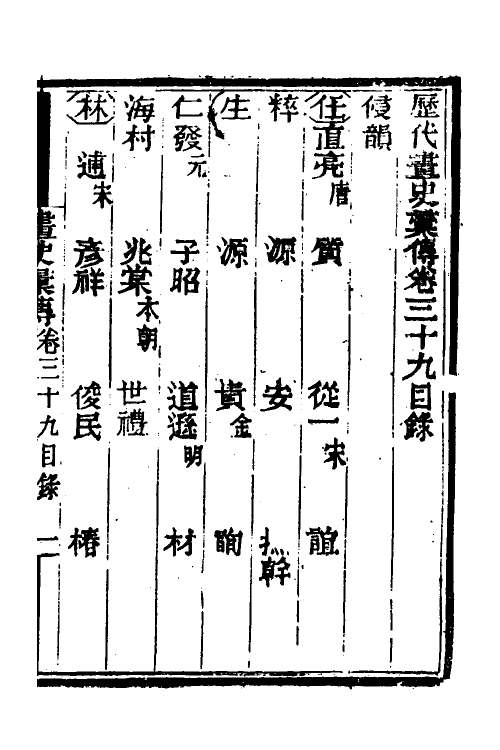 歷代畫史彙傳卷三十九目錄
侵韻
任直亮唐 質 從一宋 誼
粹 源 安 撫幹
生 源 貴金 詢
仁發元 子昭 道遜明 材
海村 兆棠本朝 世禮
林 逋宋 彥祥 俊民 椿
畫史彙傳卷三十九目錄 一